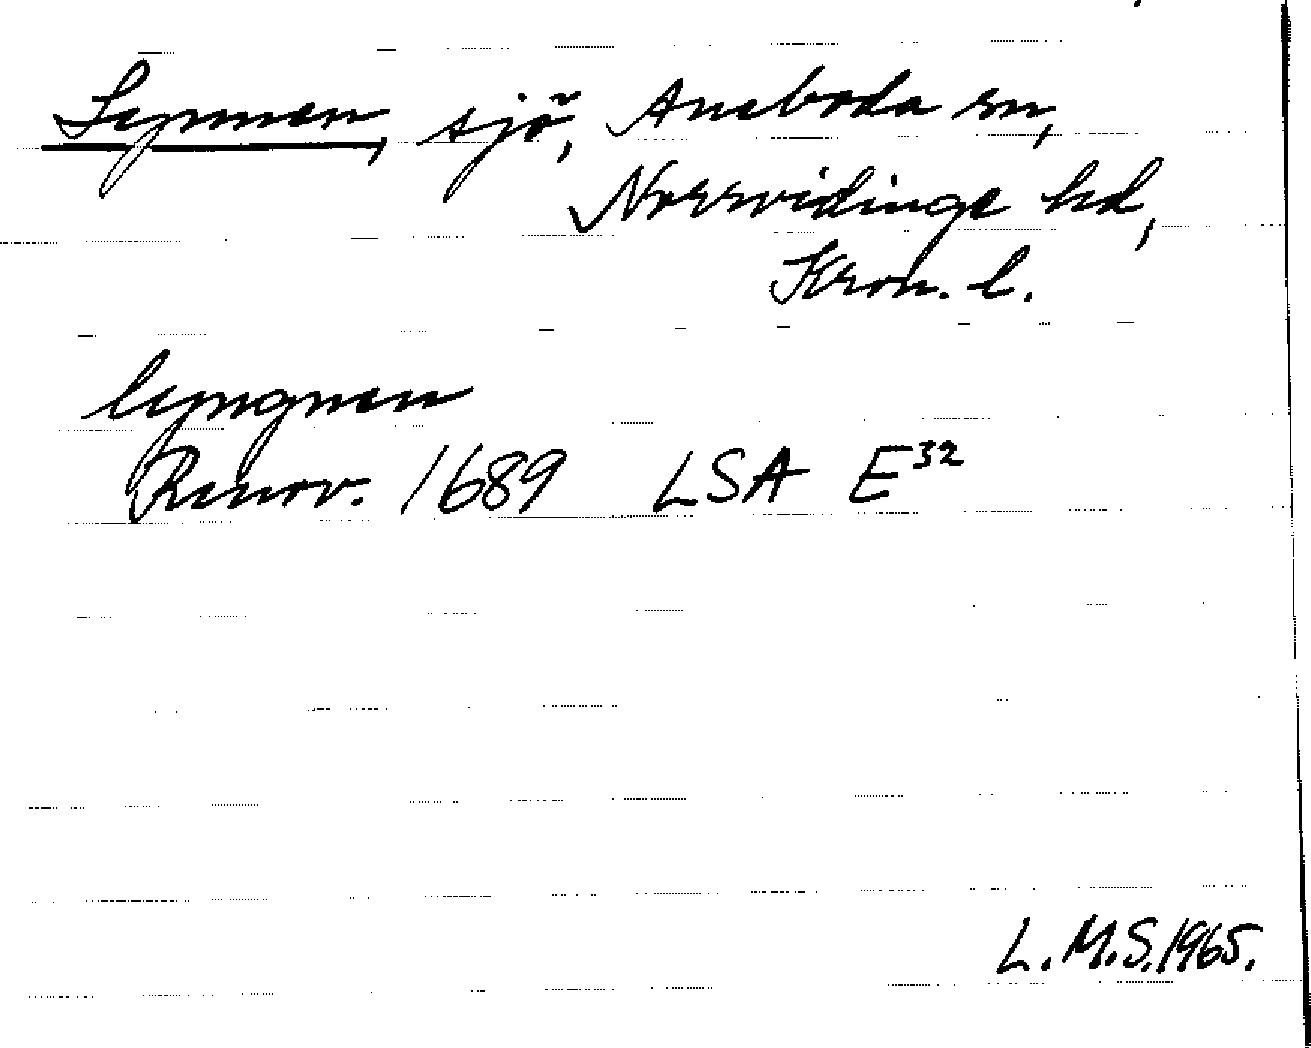 Lynnen, sjö, Aneboda sn,
Norrvidinge hd,
Kron. l.
lyngnen
Renov. 1689 LSA E³²
L.M.S. 1965.